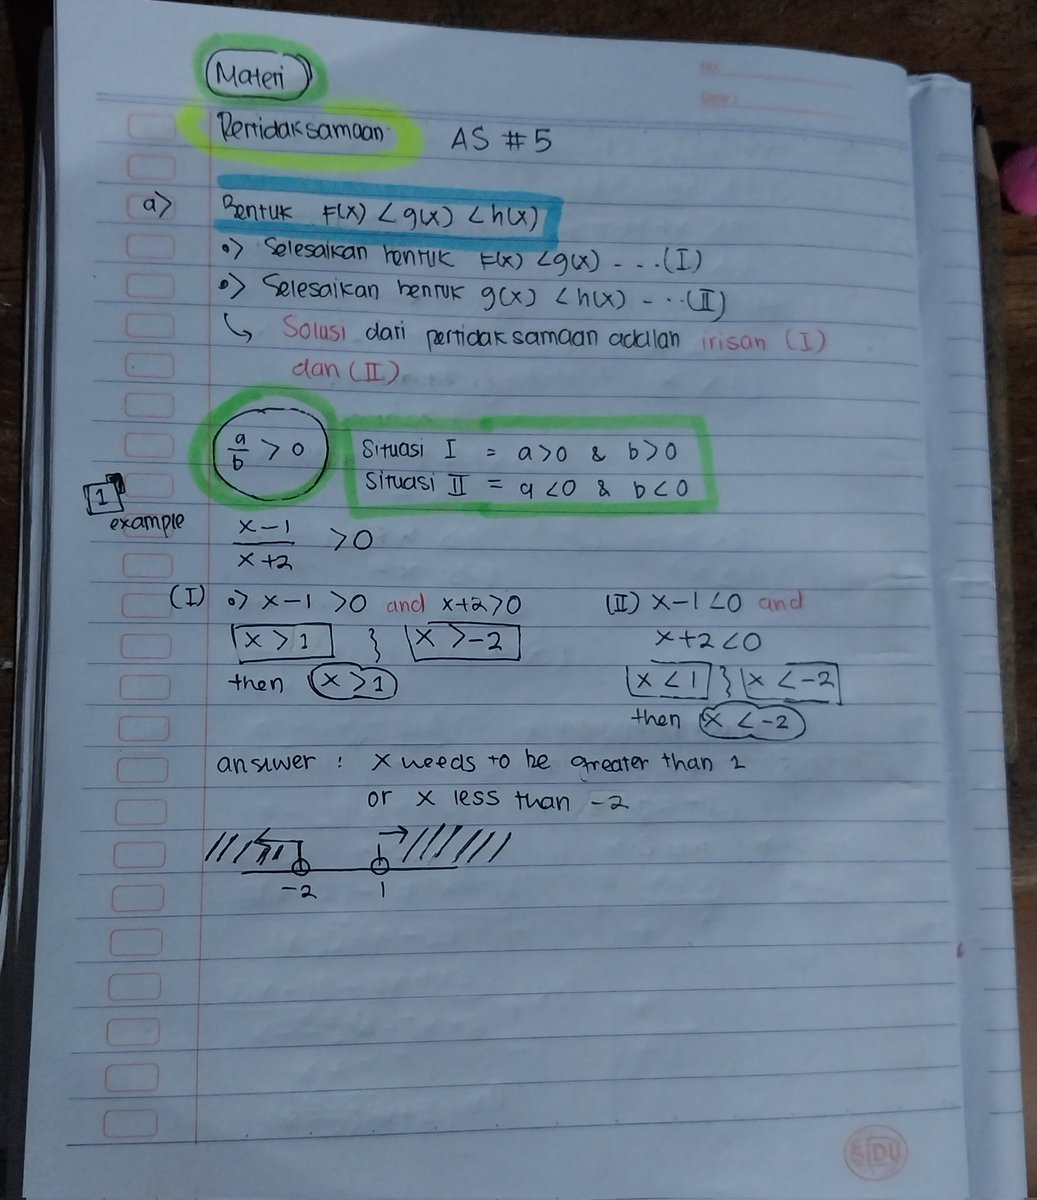 Materi
No.
Date:
Pertidaksamaan AS #5
a> Bentuk F(x) < g(x) < h(x)
•> Selesaikan bentuk F(x) < g(x) - . . . (I)
•> Selesaikan bentuk g(x) < h(x) - . . . (II)
↳ Solusi dari pertidaksamaan adalah irisan (I)
dan (II)
a/b > 0
Situasi I = a>0 & b>0
Situasi II = a<0 & b<0
1
example
x-1/x+2 >0
(I) •> x-1 >0 and x+2>0
x > 1 } x > -2
then x > 1
(II) x-1 <0 and
x+2<0
x < 1 } x < -2
then x < -2
answer : x needs to be greater than 1
or x less than -2
-2 1
SIDU